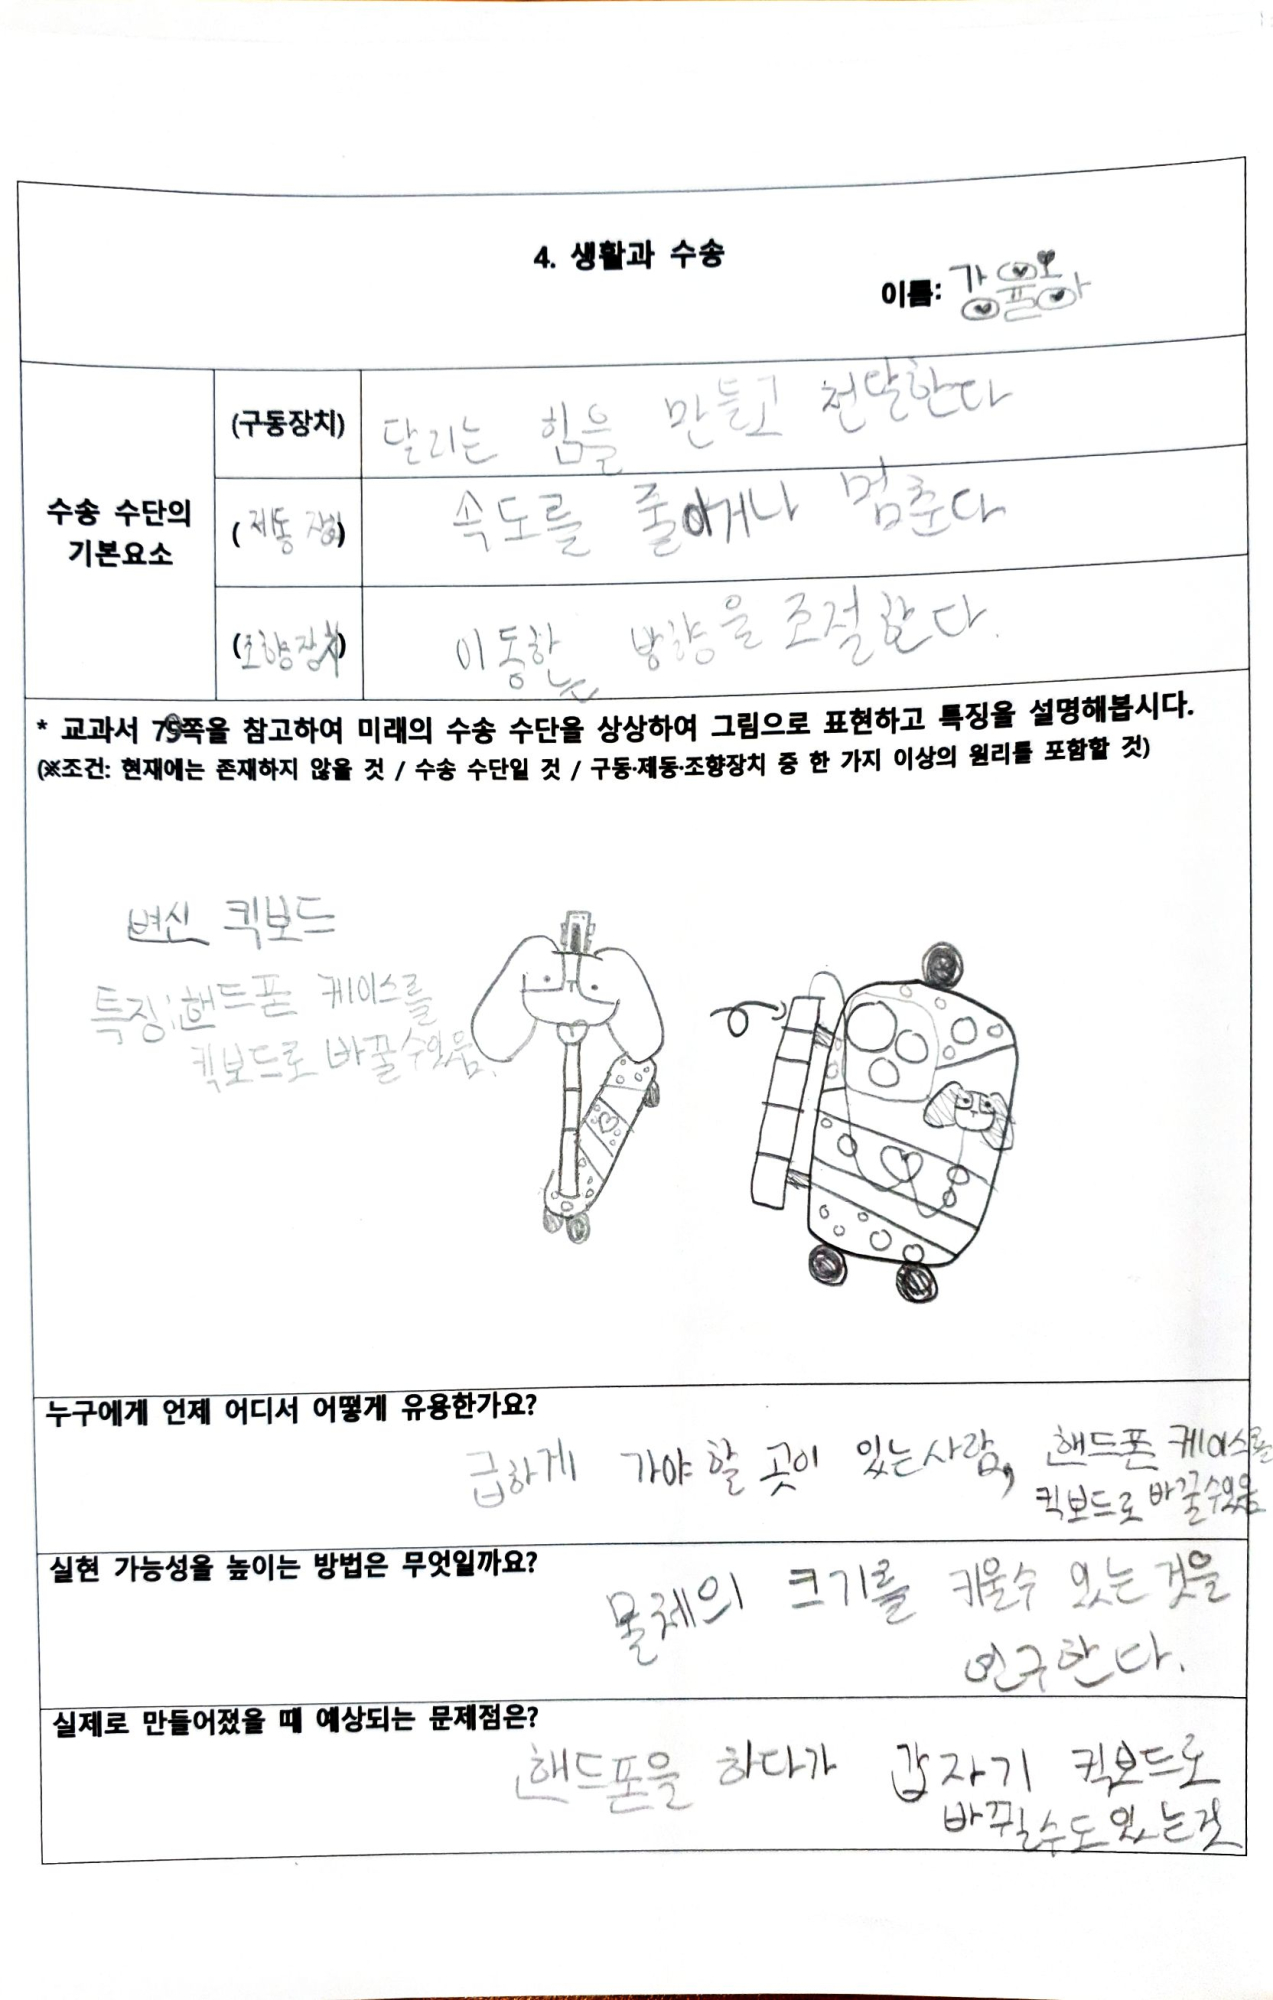 4. 생활과 수송
이름: 강윤아
수송 수단의
기본요소
(구동장치)
달리는 힘을 만들고 전달한다
(제동 장치)
속도를 줄이거나 멈춘다
(조향장치)
이동하는 방향을 조절한다.
* 교과서 75쪽을 참고하여 미래의 수송 수단을 상상하여 그림으로 표현하고 특징을 설명해봅시다.
(※조건: 현재에는 존재하지 않을 것 / 수송 수단일 것 / 구동·제동·조향장치 중 한 가지 이상의 원리를 포함할 것)
변신 킥보드
특징:핸드폰 케이스를
킥보드로 바꿀수있음.
누구에게 언제 어디서 어떻게 유용한가요?
급하게 가야 할 곳이 있는사람, 핸드폰 케이스를
킥보드로 바꿀수있음
실현 가능성을 높이는 방법은 무엇일까요?
물체의 크기를 키울수 있는 것을
연구한다.
실제로 만들어졌을 때 예상되는 문제점은?
핸드폰을 하다가 갑자기 킥보드로
바뀔수도있는것